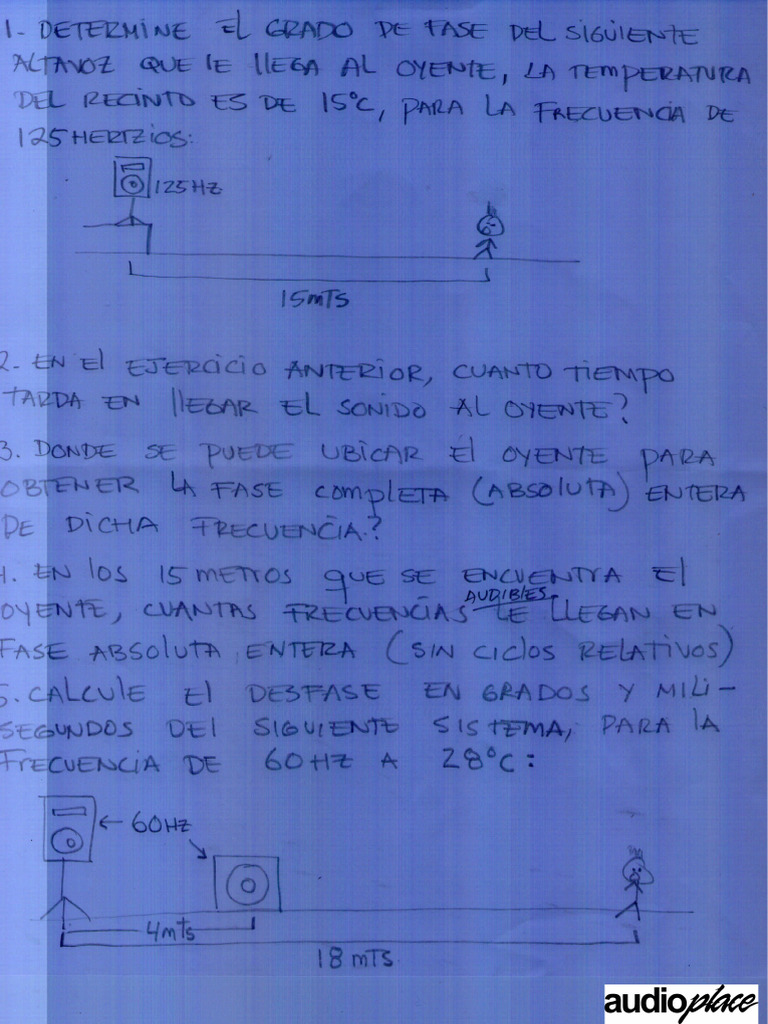 1. DETERMINE EL GRADO DE FASE DEL SIGUIENTE
ALTAVOZ QUE LE LLEGA AL OYENTE, LA TEMPERATURA
DEL RECINTO ES DE 15°C, PARA LA FRECUENCIA DE
125 HERTZIOS:
125 HZ
15 mTS
2. EN El EJERCICIO ANTERIOR, CUANTO TIEMPO
TARDA EN LLEGAR EL SONIDO AL OYENTE?
3. DONDE SE PUEDE UBICAR El OYENTE PARA
OBTENER LA FASE COMPLETA (ABSOLUTA) ENTERA
DE DICHA FRECUENCIA.?
4. EN LOS 15 METROS QUE SE ENCUENTRA El
OYENTE, CUANTAS FRECUENCIAS AUDIBLES LE LLEGAN EN
FASE ABSOLUTA ENTERA (SIN CICLOS RELATIVOS)
5. CALCULE El DESFASE EN GRADOS Y MILI-
SEGUNDOS DEl SIGUIENTE SISTEMA, PARA LA
FRECUENCIA DE 60 HZ A 28°C:
← 60 HZ
4 mts
18 mTS
audioplace